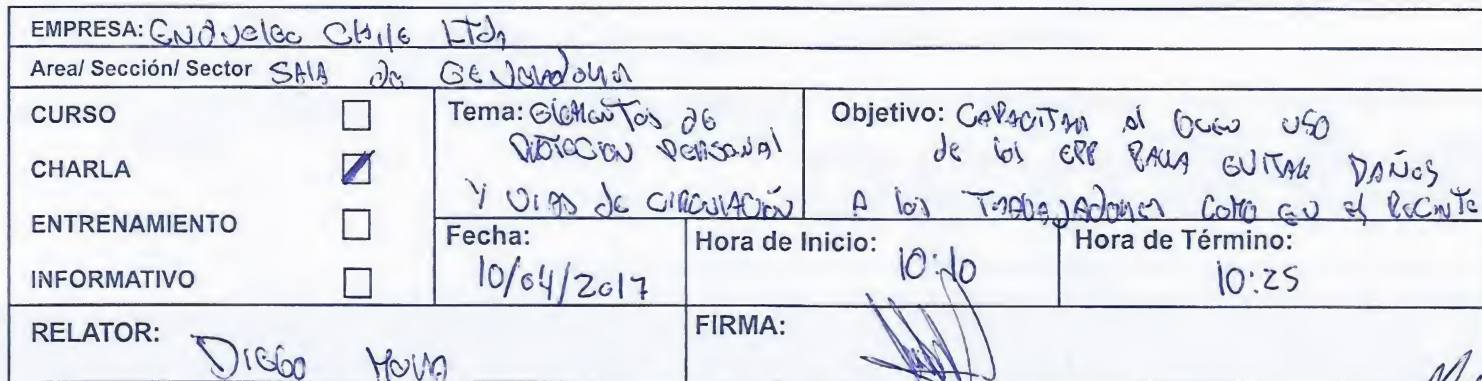 EMPRESA: Chile Ltda
Area/ Sección/ Sector SAlA de GENERADORES
CURSO
CHARLA
ENTRENAMIENTO
INFORMATIVO
Tema: ElEMENTOS DE
PROTECCION PERSONAl
Y VIAS de CIRCULACIÓN
Objetivo: CAPACITAR Al USO
de los EPP PARA EVITAR DAÑOS
A los TRABAJADORES COMO EN El RECINTO
Fecha:
10/04/2017
Hora de Inicio:
10:10
Hora de Término:
10:25
RELATOR:
DIEGO
FIRMA: